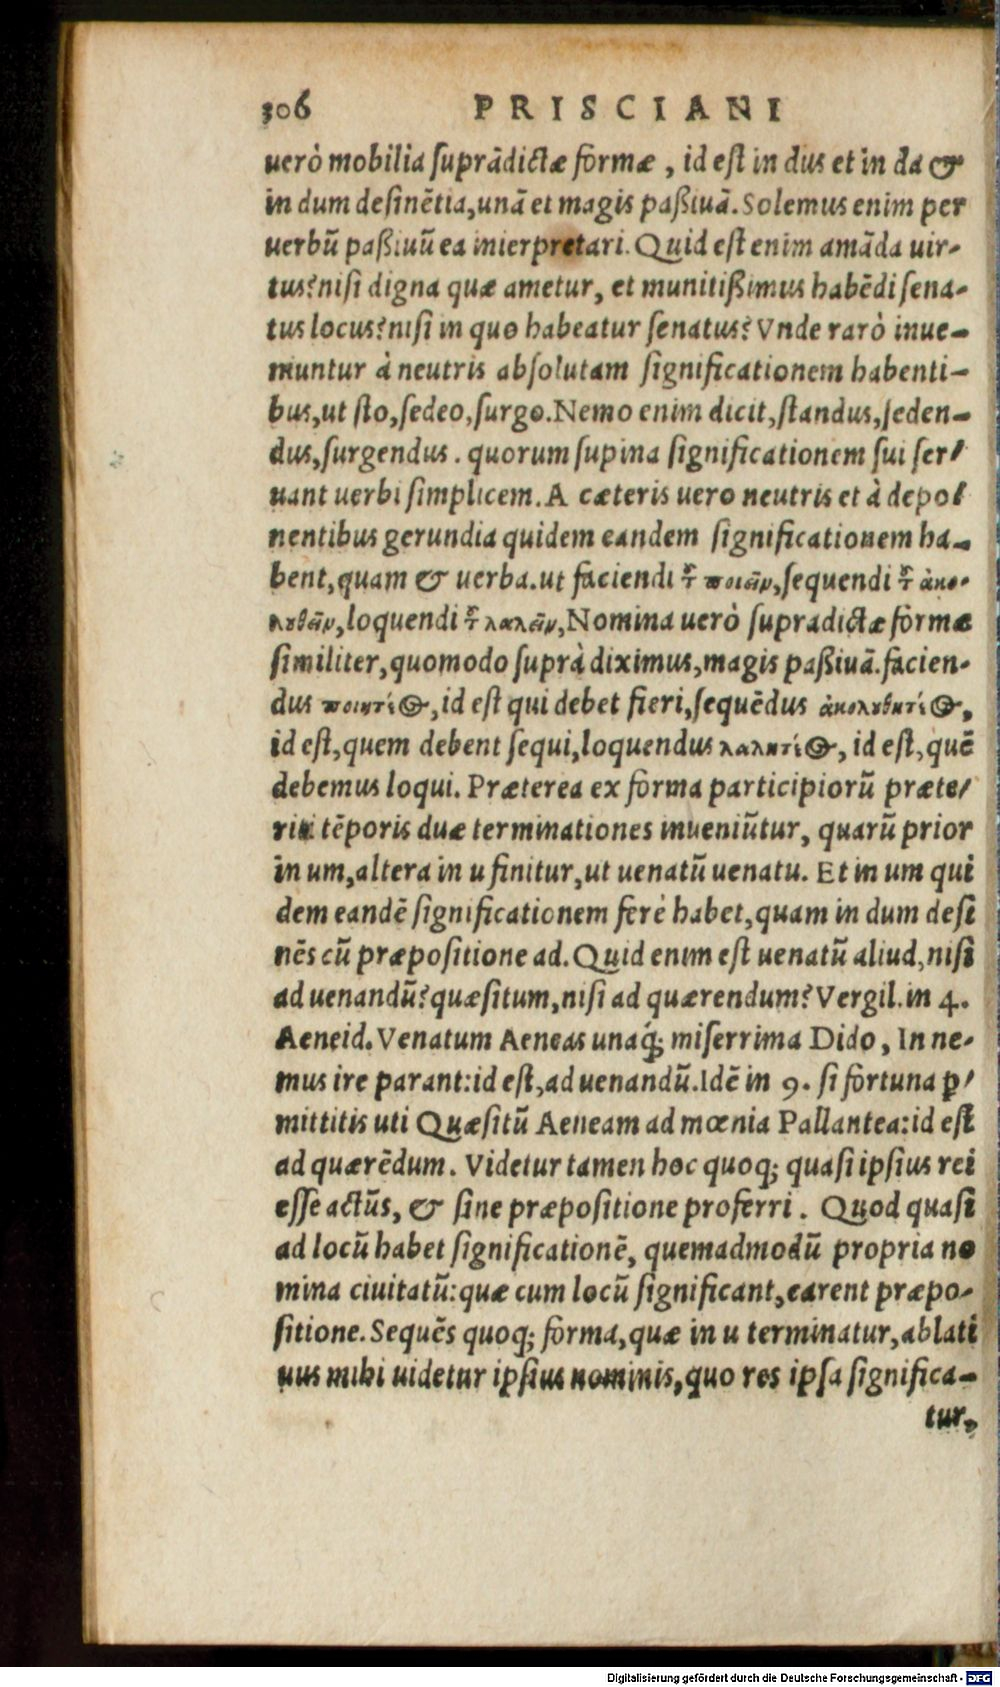 306 PRISCIANI
uerò mobilia suprādictæ formæ, id est in dus et in da &
in dum desinētia, unā et magis paßiuā. Solemus enim per
uerbū paßiuū ea interpretari. Quid est enim amāda uir-
tus? nisi digna quæ ametur, et munitißimus habēdi sena-
tus locus? nisi in quo habeatur senatus? Vnde rarò inue-
niuntur à neutris absolutam significationem habenti-
bus, ut sto, sedeo, surgo. Nemo enim dicit, standus, seden-
dus, surgendus. quorum supina significationem sui ser-
uant uerbi simplicem. A cæteris uero neutris et à depo-
nentibus gerundia quidem eandem significationem ha-
bent, quam & uerba. ut faciendi τ̃ ποιεῖν, sequendi τ̃ ἀκο-
λουθεῖν, loquendi τ̃ λαλεῖν, Nomina uerò supradictæ formæ
similiter, quomodo suprà diximus, magis paßiuā. facien-
dus ποιητέος, id est qui debet fieri, sequēdus ἀκολουθητέος,
id est, quem debent sequi, loquendus λαλητέος, id est, quē
debemus loqui. Præterea ex forma participiorū præte-
riti tēporis duæ terminationes inueniūtur, quarū prior
in um, altera in u finitur, ut uenatū uenatu. Et in um qui
dem eandē significationem ferè habet, quam in dum desi
nēs cū præpositione ad. Quid enim est uenatū aliud, nisi
ad uenandū? quæsitum, nisi ad quærendum? Vergil. in 4.
Aeneid. Venatum Aeneas unaq́; miserrima Dido, In ne-
mus ire parant: id est, ad uenandū. Idē in 9. si fortuna ꝑ-
mittitis uti Quæsitū Aeneam ad mœnia Pallantea: id est
ad quærēdum. Videtur tamen hoc quoq; quasi ipsius rei
esse actūs, & sine præpositione proferri. Quod quasi
ad locū habet significationē, quemadmodū propria no
mina ciuitatū: quæ cum locū significant, carent præpo-
sitione. Sequēs quoq; forma, quæ in u terminatur, ablati
uus mihi uidetur ipsius nominis, quo res ipsa significa-
tur,
Digitalisierung gefördert durch die Deutsche Forschungsgemeinschaft - DFG